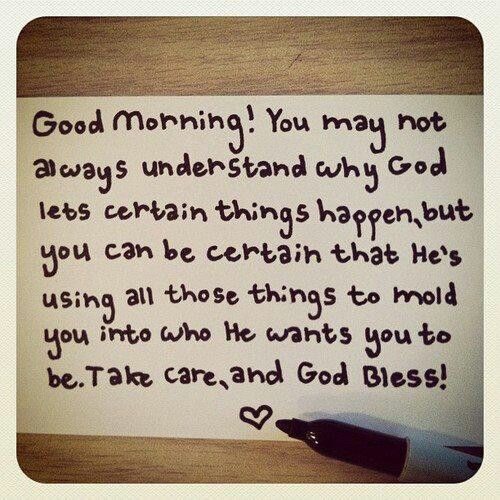 Good Morning! You may not
always understand why God
lets certain things happen, but
you can be certain that He's
using all those things to mold
you into who He wants you to
be. Take care, and God Bless!